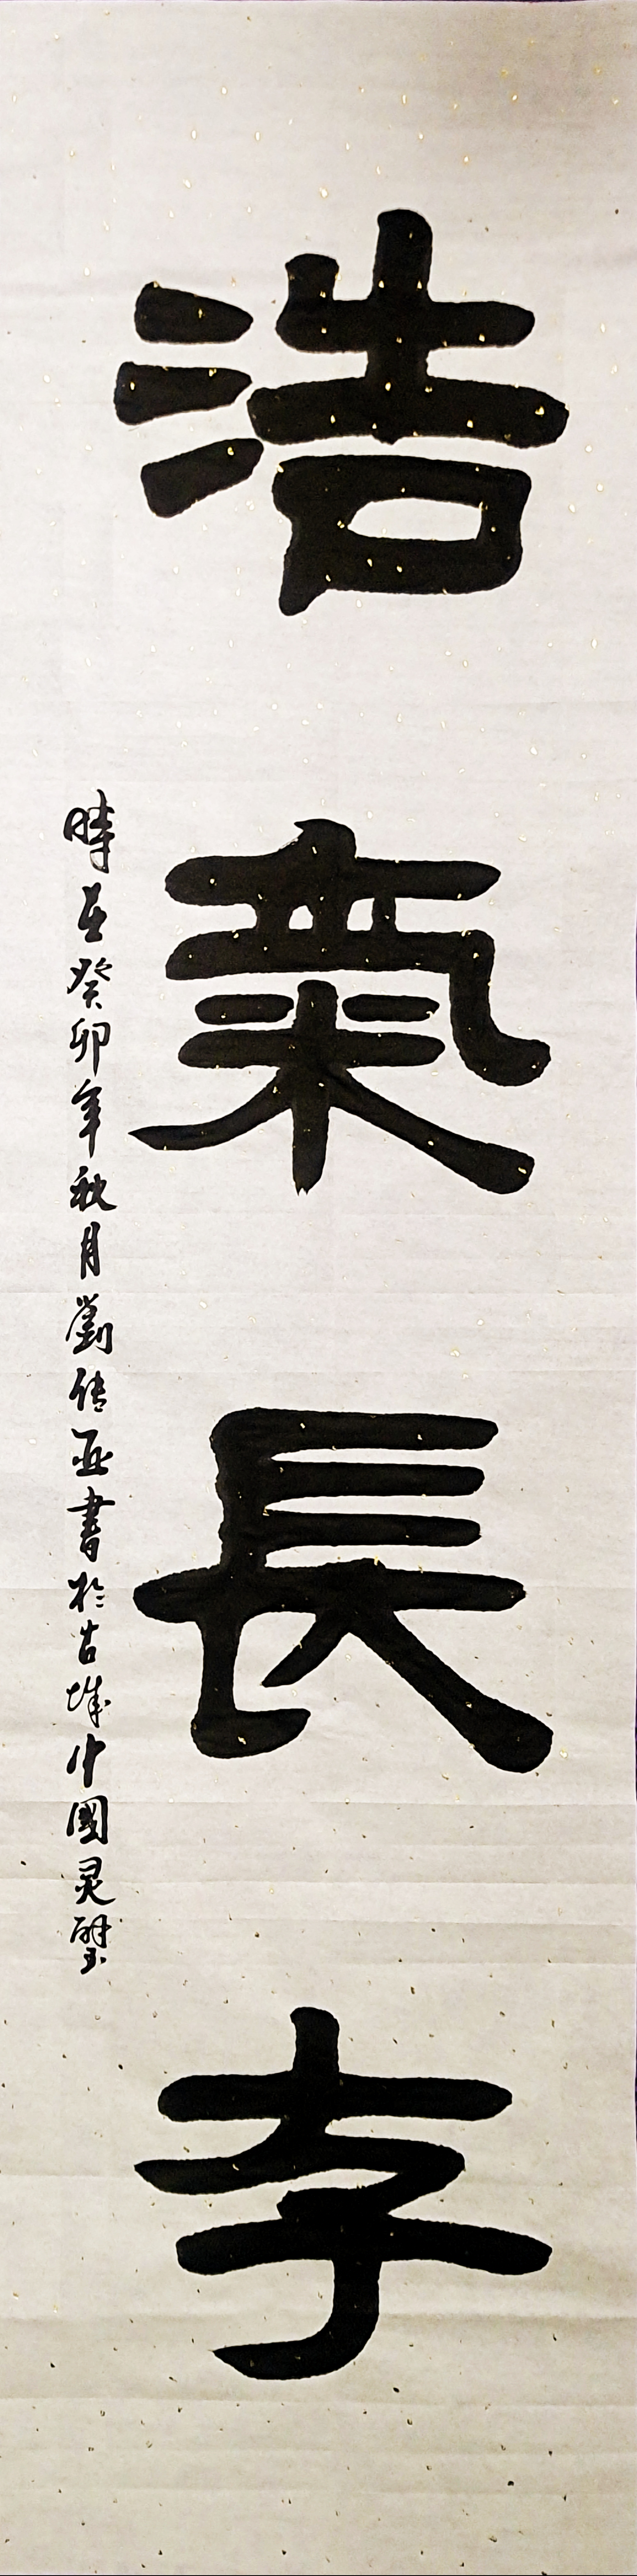 浩氣長存
時在癸卯年秋月劉传亚書於古城中國灵璧